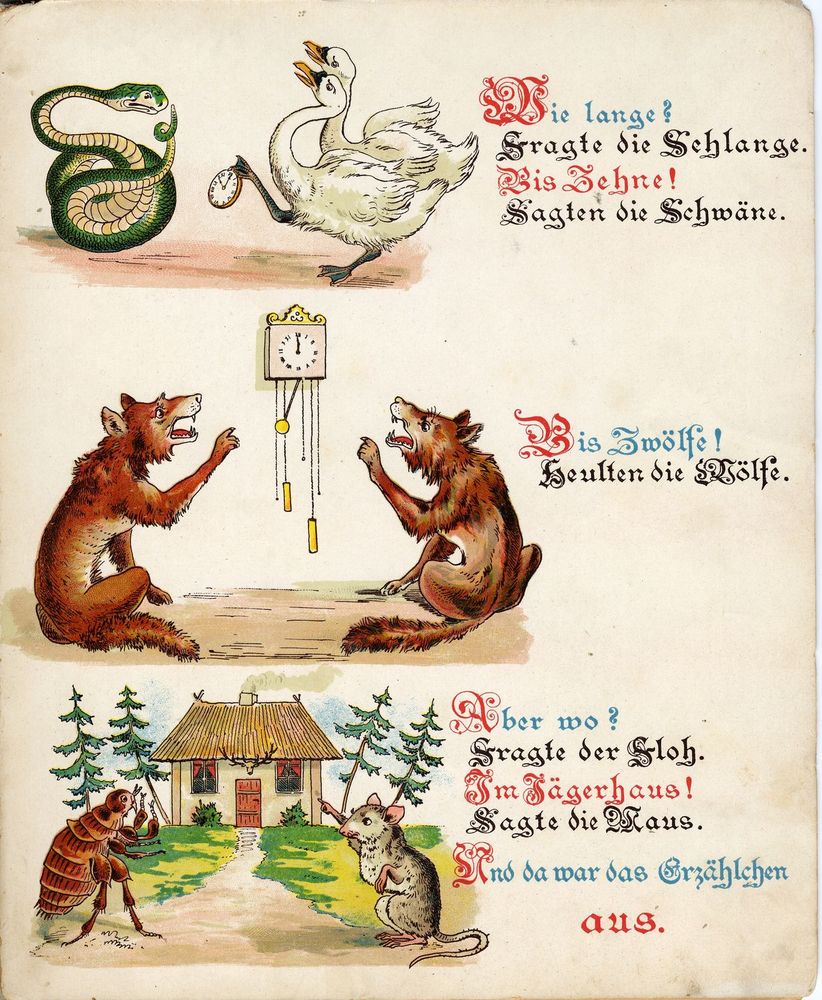 Wie lange?
Fragte die Schlange.
Bis Zehne!
Sagten die Schwäne.
Bis Zwölfe!
Heulten die Wölfe.
Aber wo?
Fragte der Floh.
Im Jägerhaus!
Sagte die Maus.
Und da war das Erzählchen
aus.